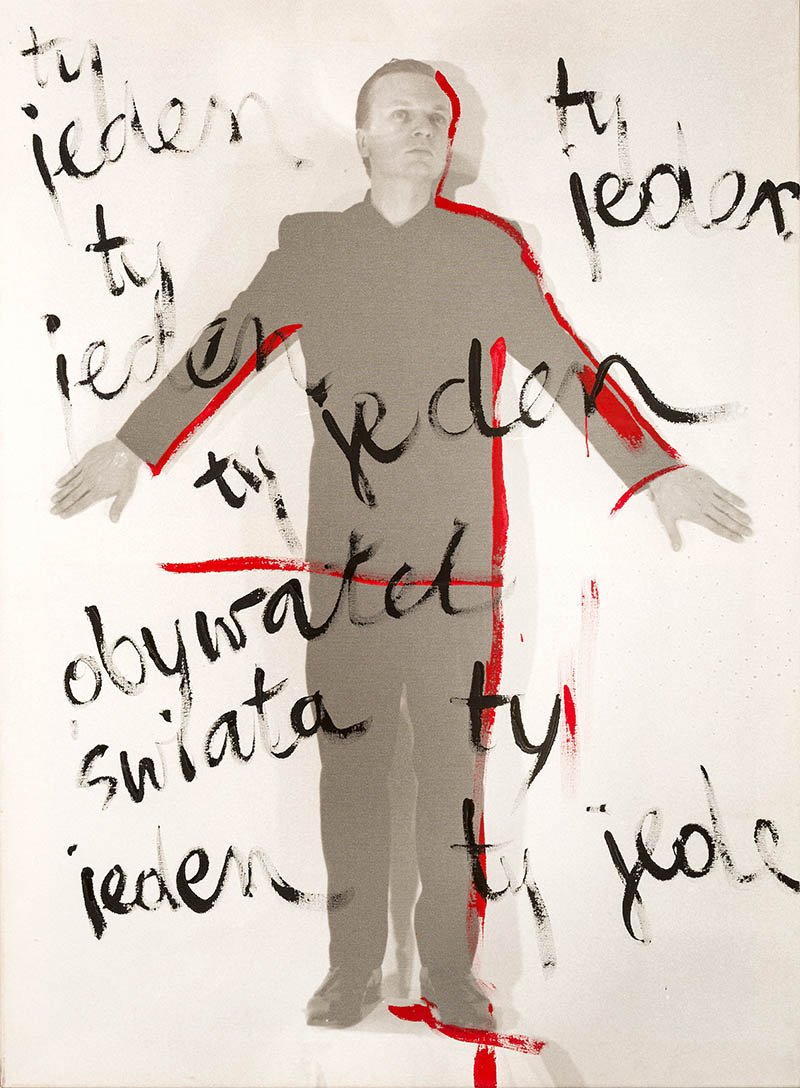 ty
jeden
ty
jeden
ty
jeden
ty jeden
obywatel
świata ty
jeden ty jede